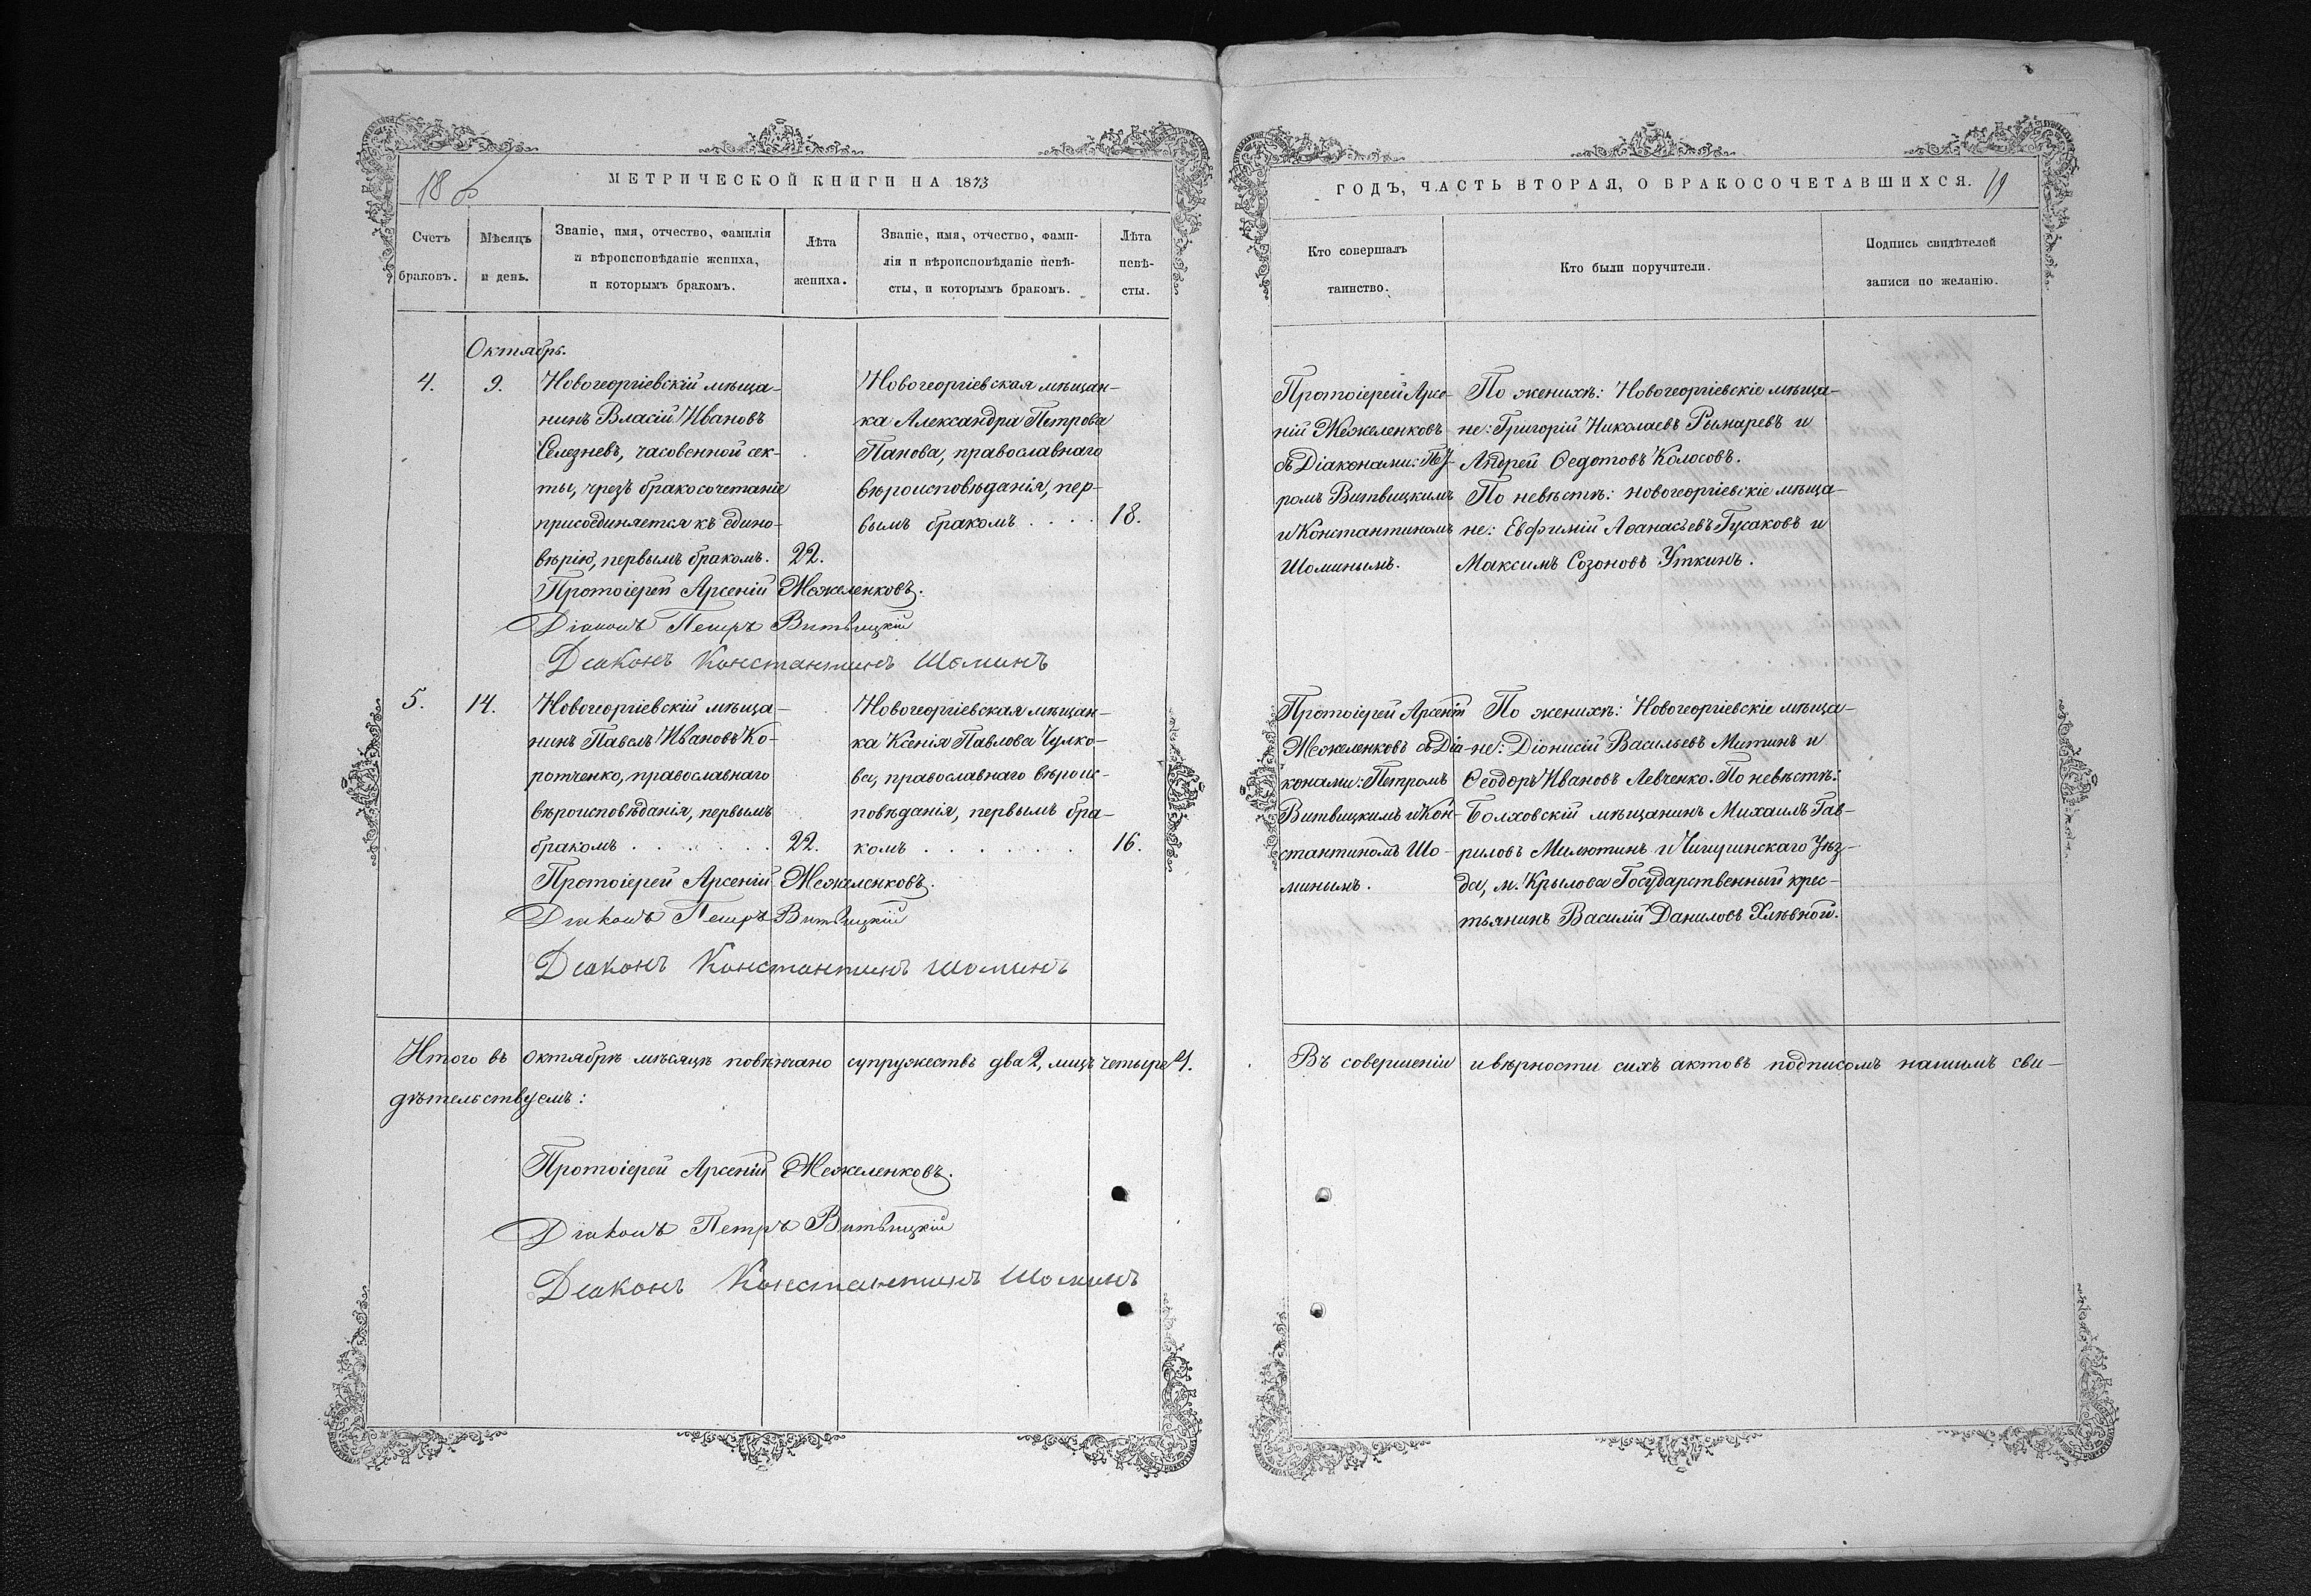 18 об
МЕТРИЧЕСКОЙ КНИГИ НА 1873
Счетъ браковъ.
Мѣсяцъ и день.
Званіе, имя, отчество, фамилія
и вѣроисповѣданіе жениха,
и которымъ бракомъ.
Лѣта
жениха.
Званіе, имя, отчество, фами-
лія и вѣроисповѣданіе невѣ-
сты, и которымъ бракомъ.
Лѣта
невѣ-
сты.
Октябрь.
4.
9.
Новогеоргіевскій мѣща-
нинъ Власій Ивановъ
Селезневъ, часовенной сек-
ты, чрезъ бракосочетаніе
присоединяется къ едино-
вѣрію, первымъ бракомъ.
22.
Новогеоргіевская мѣщан-
ка Александра Петрова
Панова, православнаго
вѣроисповѣданія, пер-
вымъ бракомъ . . . .
18.
Протоіерей Арсеній Межеленковъ.
Діаконъ Петръ Витвицкій
Діаконъ Константинъ Шоминъ
5.
14.
Новогеоргіевскій мѣща-
нинъ Павелъ Ивановъ Ко-
ротченко, православнаго
вѣроисповѣданія, первымъ
бракомъ . . . . . .
22.
Новогеоргіевская мѣщан-
ка Ксенія Павлова Чулко-
ва, православнаго вѣроис-
повѣданія, первымъ бра-
комъ . . . . . .
16.
Протоіерей Арсеній Межеленковъ.
Діаконъ Петръ Витвицкій
Діаконъ Константинъ Шоминъ
Итого въ октябрѣ мѣсяцѣ повѣнчано супружествъ два 2, лицъ четыре 4.
дѣтельствуемъ:
Протоіерей Арсеній Межеленковъ.
Діаконъ Петръ Витвицкій
Діаконъ Константинъ Шоминъ
ГОДЪ, ЧАСТЬ ВТОРАЯ, О БРАКОСОЧЕТАВШИХСЯ.
19
Кто совершалъ
таинство.
Кто были поручители.
Подпись свидѣтелей
записи по желанію.
Протоіерей Арсе-
ній Межеленковъ
съ Діаконами: Пет-
ромъ Витвицкимъ
и Константиномъ
Шоминымъ.
По женихѣ: Новогеоргіевскіе мѣща-
не: Григорій Николаевъ Рымаревъ и
Андрей Ѳедотовъ Колосовъ.
По невѣстѣ: новогеоргіевскіе мѣща-
не: Евфимій Аѳанасьевъ Гусаковъ и
Максимъ Созоновъ Уткинъ.
Протоіерей Арсеній
Межеленковъ съ Діа-
конами: Петромъ
Витвицкимъ и Кон-
стантиномъ Шо-
минымъ.
По женихѣ: Новогеоргіевскіе мѣща-
не: Діонисій Васильевъ Митинъ и
Ѳеодоръ Ивановъ Левченко. По невѣстѣ:
Болховскій мѣщанинъ Михаилъ Гав-
риловъ Милютинъ и Чигиринскаго Уѣз-
да, м. Крылова Государственный крес-
тьянинъ Василій Даниловъ Хлѣвной.
Въ совершеніи и вѣрности сихъ актовъ подписомъ нашимъ сви-